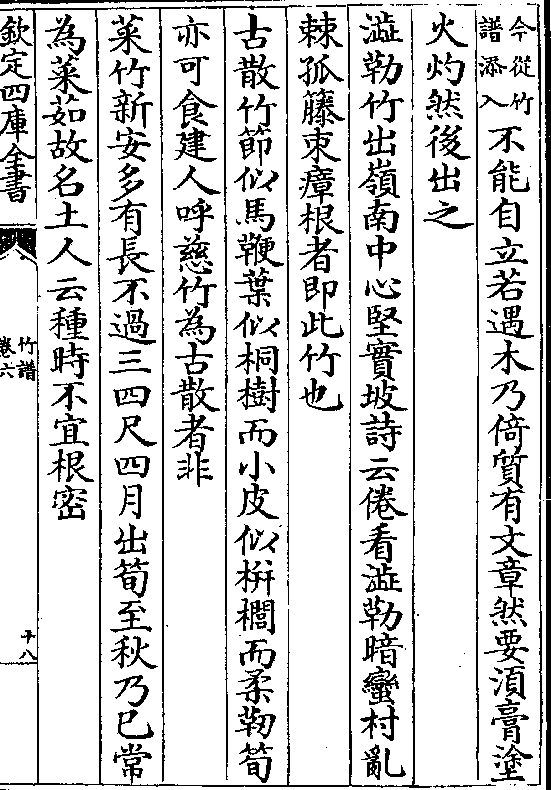 今從竹
譜添入
不能自立若遇木乃倚質有文章然要湏膏塗
火灼然後出之
澁勒竹出嶺南中心堅實坡詩云倦看澁勒暗蠻村亂
棘孤籐束瘴根者即此竹也
古散竹節似馬鞭葉似桐樹而小皮似栟櫚而柔韌筍
亦可食建人呼慈竹為古散者非
菜竹新安多有長不過三四尺四月出筍至秋乃已常
為菜茹故名土人云種時不宜根密
欽定四庫全書
竹譜
卷六
十八